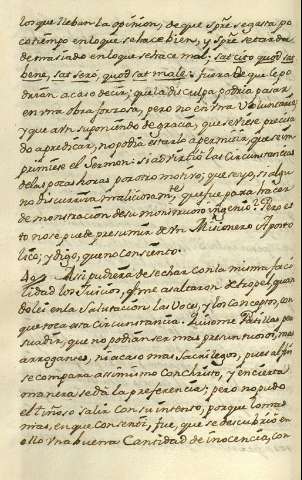 los que lleban la opinion, de que Spre se gasta po
co tiempo en lo que se hace bien, y Spre se tarda
demasiado en lo que se hace mal; sat cito quod sat
bene, sat sero, quod sat male: fuera de que le po
drian acaso decir, que la disculpa podria passar
en una Obra forzosa, pero no en una Voluntaria;
y que aun suponiendo de gracia, que se viese precisa
do a predicar, no podia estarlo a permitir, que se im
primiese el Sermon: si advirtió las Circunstancias
de las pocas horas por otro motivo; que se yo, si algu
no discurrirá maliciosamte que fue para hacer
demonstracion de su monstruoso ingenio? Pero es
to no se puede presumir de un Misionero Aposto
lico; y digo, que no consiento.
Assi pudiera desechar con la misma faci
lidad los Juicios, q me asaltaron de tropel, quan
do lei en la Salutacion las Voces, y los Conceptos, con
que toca esta Circunstancia. Quisome Patillas per
suadir, que no podian ser mas presuntuosos, mas
arrogantes, ni acaso mas Sacrilegos, pues al fin
se compara assimismo con Christo, y en cierta
manera se dá la preferencia; pero no pudo
el tiñoso salir con su intento, porque lo mas
mas, en que consentí, fue, que se descubrio en
ello una buena Cantidad de inocencia, con